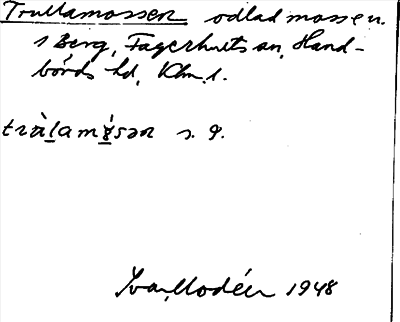 Trullamossen odlad mosse n.
s Berg, Fagerhults sn, Hand-
börds hd, Klm. l.
tràlamósən s. g.
Ivar Modéer 1948